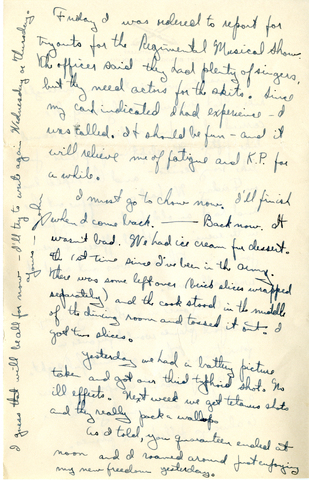 Friday I was ordered to report for
tryouts for the Regimental Musical Show.
The officer said they had plenty of singers,
but they need actors for the skits. Since
my card indicated I had experience - I
was called. It should be fun - and it
will relieve me of fatigue and K.P. for
a while.
I must go to chow now. I'll finish
when I come back. ——— Back now. It
wasn't bad. We had ice cream for dessert.
The 1st time since I've been in the Army.
There was some left over (Brick slices wrapped
separately) and the cook stood in the middle
of the dining room and tossed it out. I
got two slices.
Yesterday we had a battery picture
taken and got our third typhoid shot. No
ill effects. Next week we get tetanus shots
and they really pack a wallop.
As I told you quarantine ended at
noon and I roamed around just enjoying
my new freedom yesterday.
I guess that will be all for now - I'll try to write again Wednesday or Thursday.